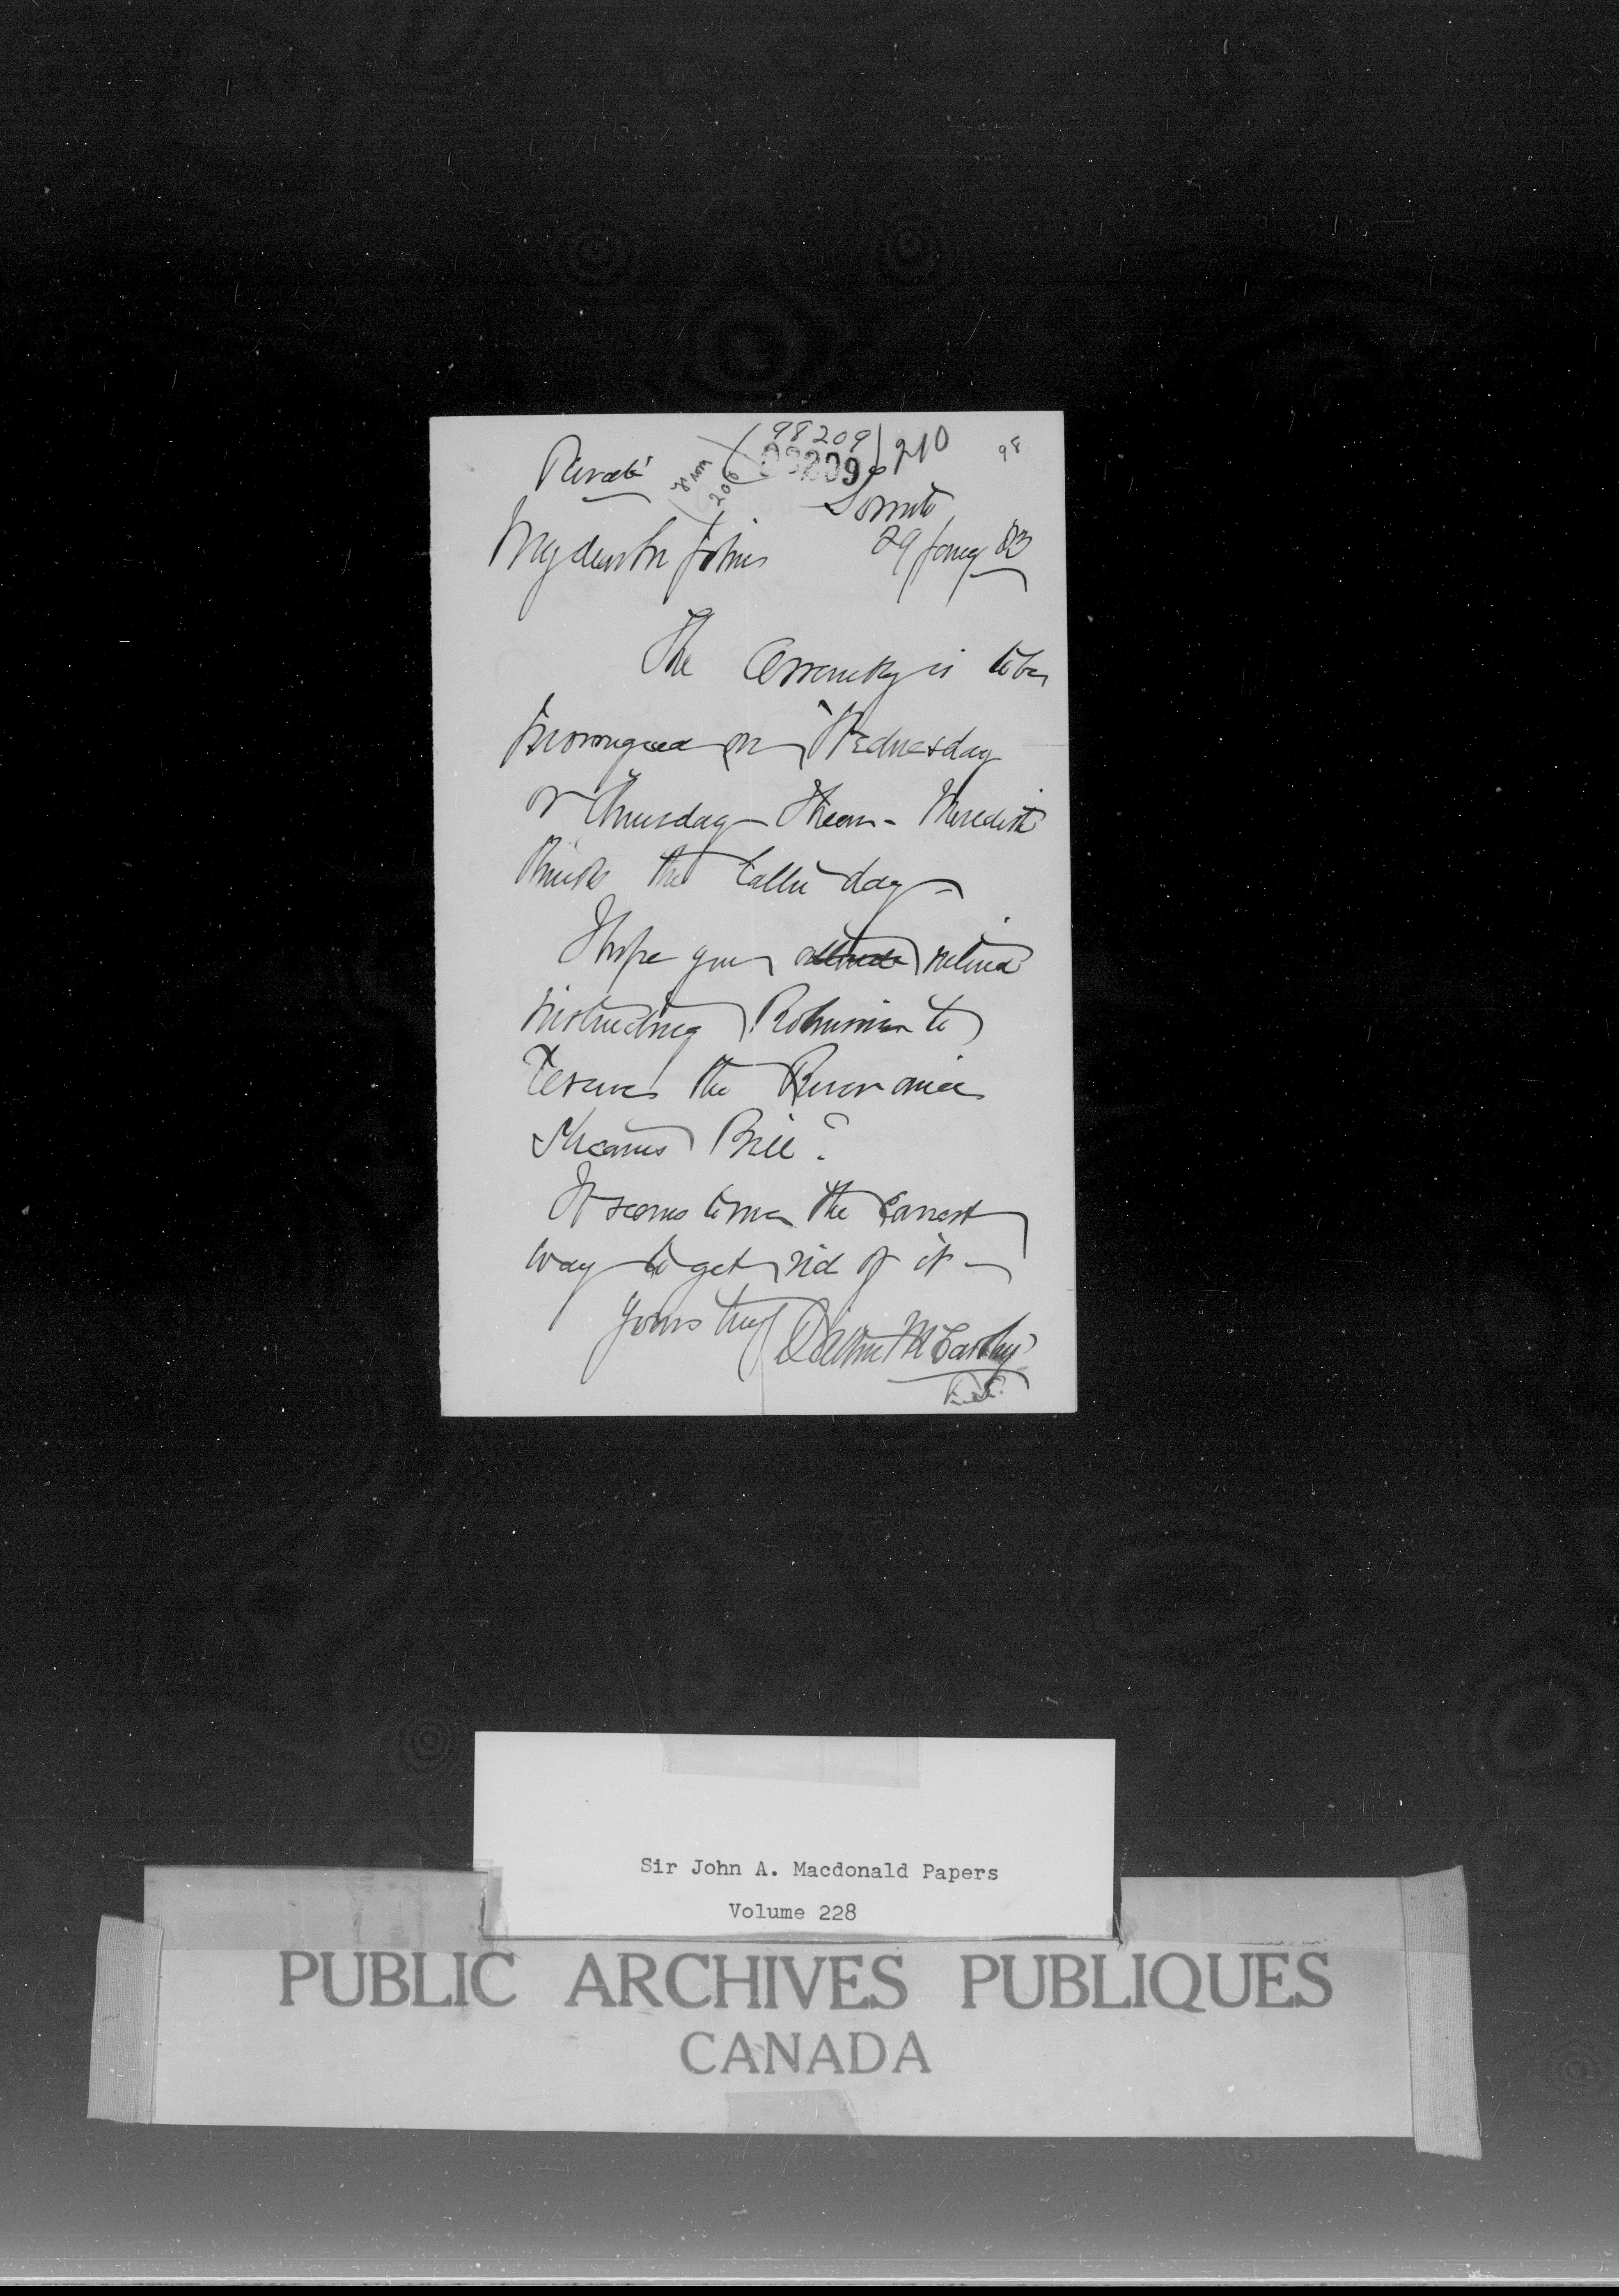 98209 210 98
Private 98209
from 200
Toronto
My dear Sir John 29 Jany 83
The Assembly is to be
prorogued on Wednesday
or Thursday I hear - Meredith
thinks the latter day -
I hope you intend
instructing Robinson to
reserve the River and
Streams Bill?
It seems to me the easiest
way to get rid of it -
Yours truly Dalton McCarthy
Sir John A. Macdonald Papers
Volume 228
PUBLIC ARCHIVES PUBLIQUES
CANADA